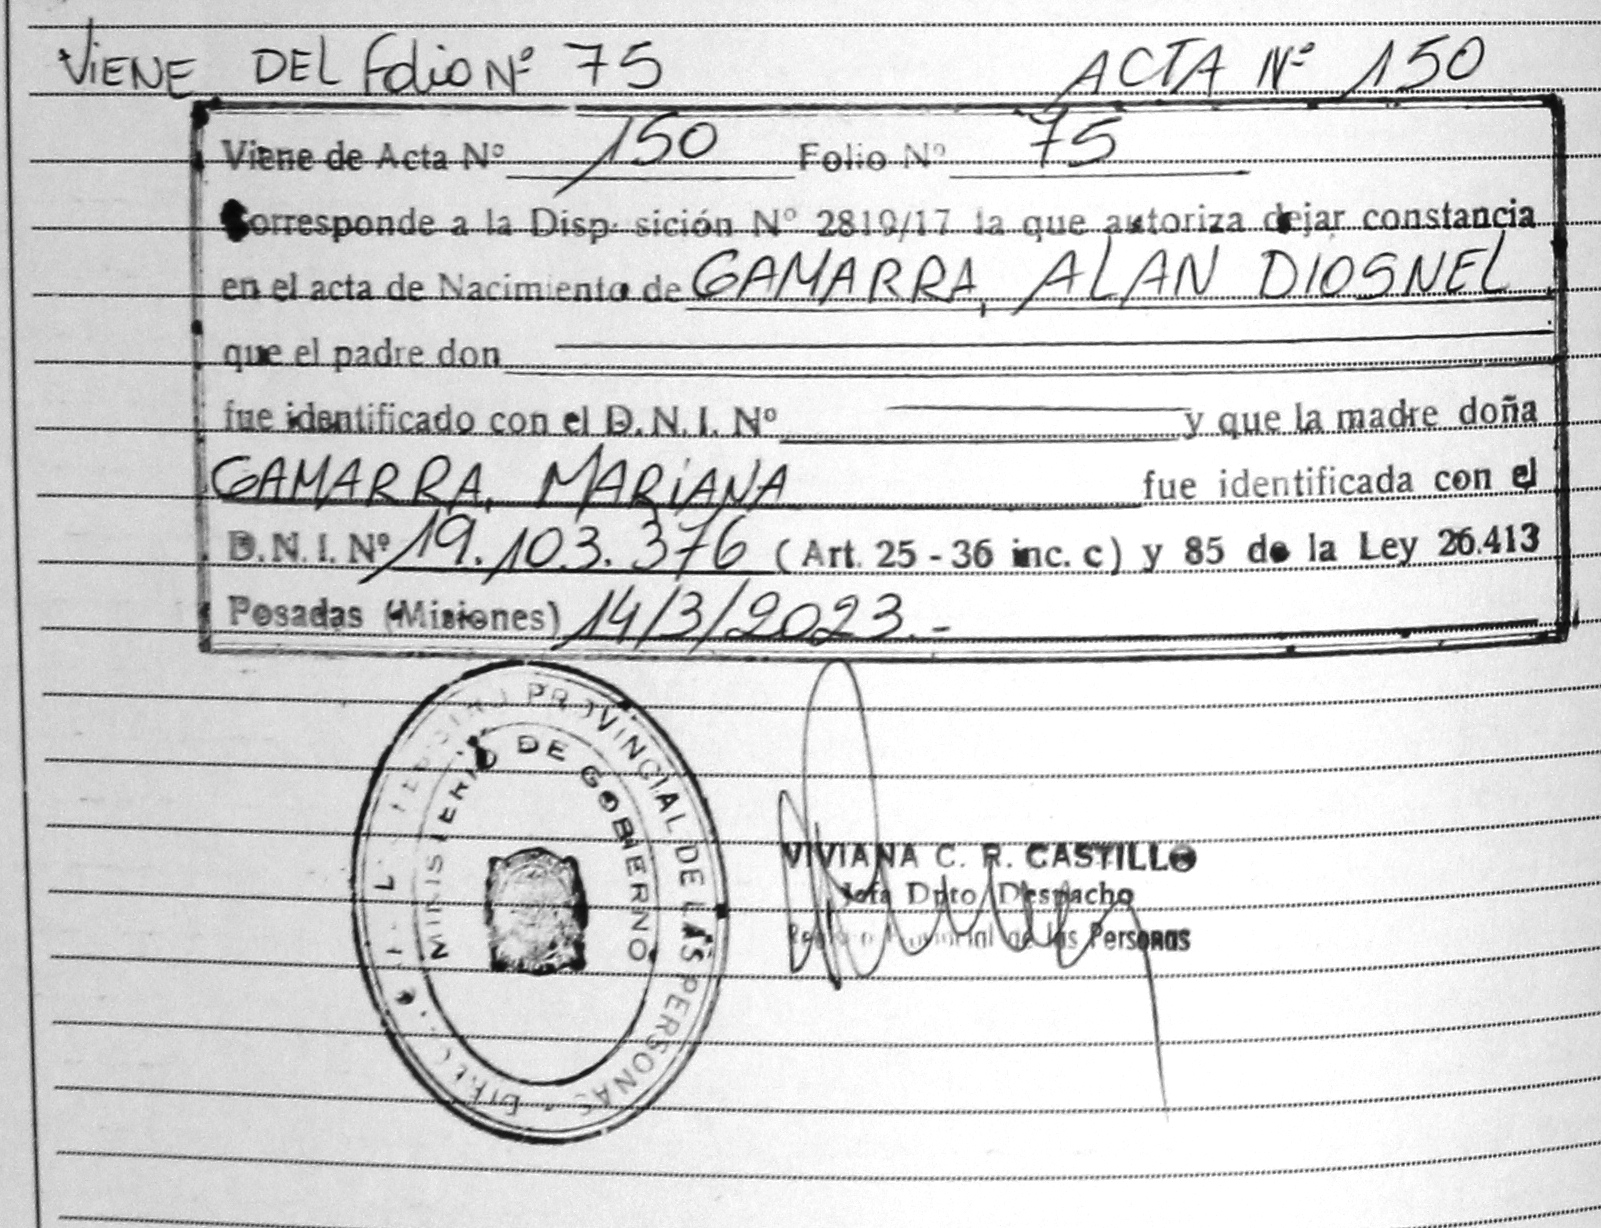 ViENE DEL Folio Nº 75 ACTA Nº 150
Viene de Acta Nº 150 Folio Nº 75
Corresponde a la Disp. sición Nº 2819/17 la que autoriza dejar constancia
en el acta de Nacimiento de GAMARRA, ALAN DIOSNEL
que el padre don
fue identificado con el D.N.I. Nº y que la madre doña
GAMARRA, MARiANA fue identificada con el
D.N.I. Nº 19.103.376 (Art. 25 - 36 inc. c) y 85 de la Ley 26.413
Posadas (Misiones) 14/3/2023.-
PROVINCIAL DE LAS PERSONAS
MINISTERIO DE GOBIERNO
VIVIANA C. R. CASTILLO
Jefa Dpto Despacho
de las Personas